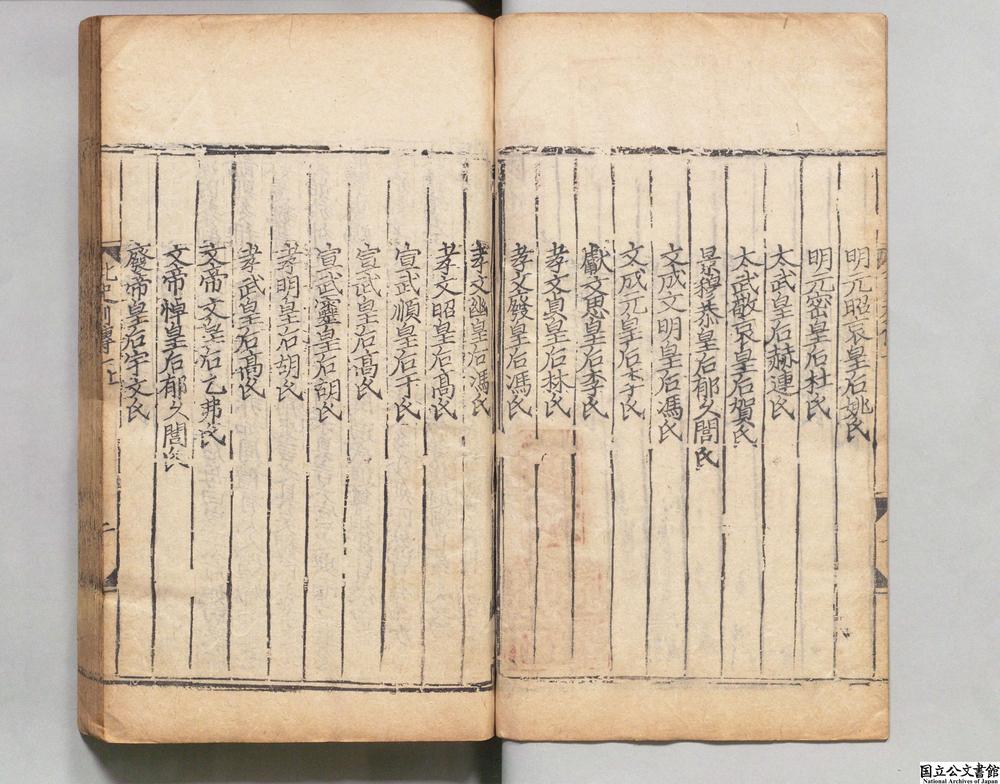 明元昭哀皇后姚氏
明元密皇后杜氏
太武皇后赫連氏
太武敬哀皇后賀氏
景穆恭皇后郁久閭氏
文成文明皇后馮氏
文成元皇后李氏
獻文思皇后李氏
孝文貞皇后林氏
孝文廢皇后馮氏
孝文幽皇后馮氏
孝文昭皇后高氏
宣武順皇后于氏
宣武皇后高氏
宣武靈皇后胡氏
孝明皇后胡氏
孝武皇后高氏
文帝文皇后乙弗氏
文帝悼皇后郁久閭氏
廢帝皇后宇文氏
北史列傳一上
国立公文書館
National Archives of Japan